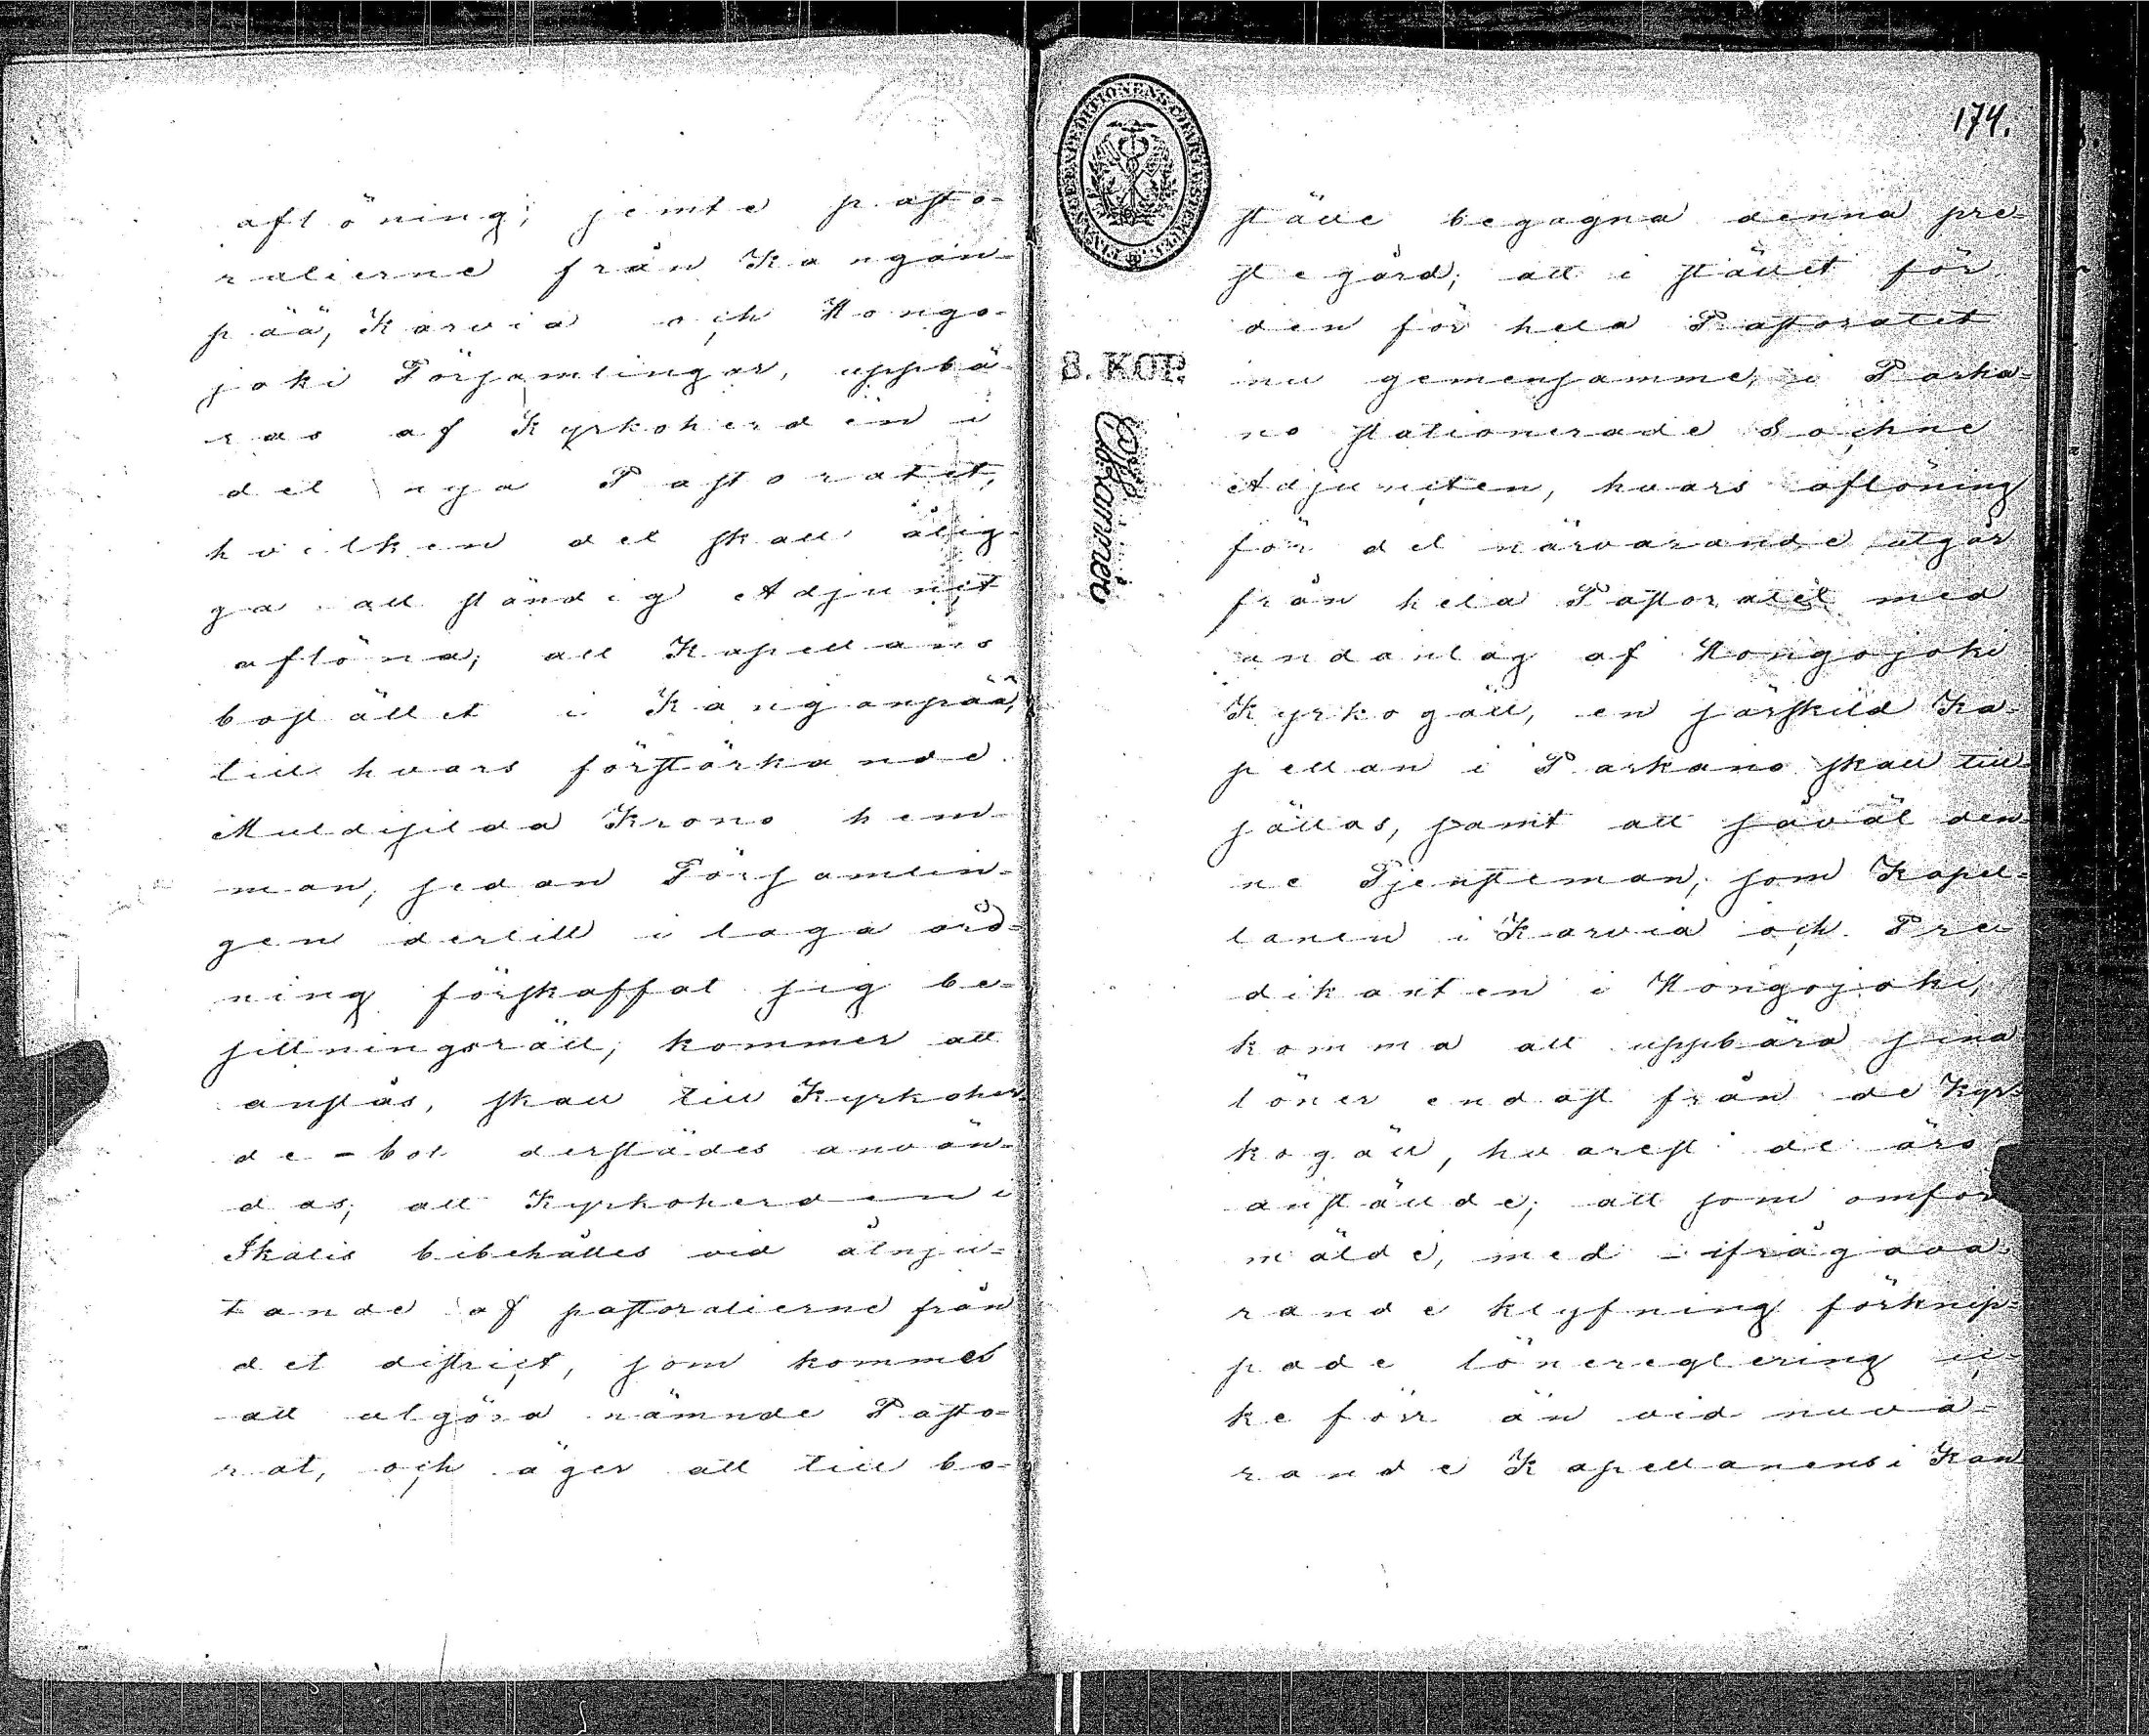 aflöning; jemte pasto-
ralierne från Kangan-
pää, Karvia och Hongo-
joki Församlingar, uppbä-
ras af Kyrkoherden i
det nya Pastoratet,
hvilken det skall ålig-
ga att ständig Adjunct
aflöna; att Kapellans
bostället i Kanganpää,
till hvars förstärkande
Muldisilda Krono hem-
man, sedan Församlin-
gen dertill i laga ord-
ning förskaffat sig be-
sittningsrätt, kommer att
anslås, skall till Kyrkoher-
de-bol derstädes använ-
das; att Kyrkoherden i
Ikalis bibehålles vid åtnju-
tande af pastoralierne från
det district, som kommer
att utgöra nämnde Pasto-
rat, och äger att till bo-
174.
ställe begagna denna pre-
stegård; att i stället för
den för hela Pastoratet
nu gemensamme, i Parka-
no stationerade Sockne
Adjuncten, hvars aflöning
för det närvarande utgår
från hela Pastoratet med
undantag af Hongojoki
Kyrkogäll, en särskild Ka-
pellan i Parkano skall till-
sättas, samt att såväl den-
ne Tjensteman, som Kapel-
lanen i Karvia och Pre-
dikanten i Hongojoki,
komma att uppbära sina
löner endast från de Kyr-
kogäll, hvarest de äro
anställde; att som omför-
mälde, med ifrågava-
rande klyfning förknip-
pade lönereglering ic-
ke förr än vid nuva-
rande Kapellanens i Kan
B. KOP.